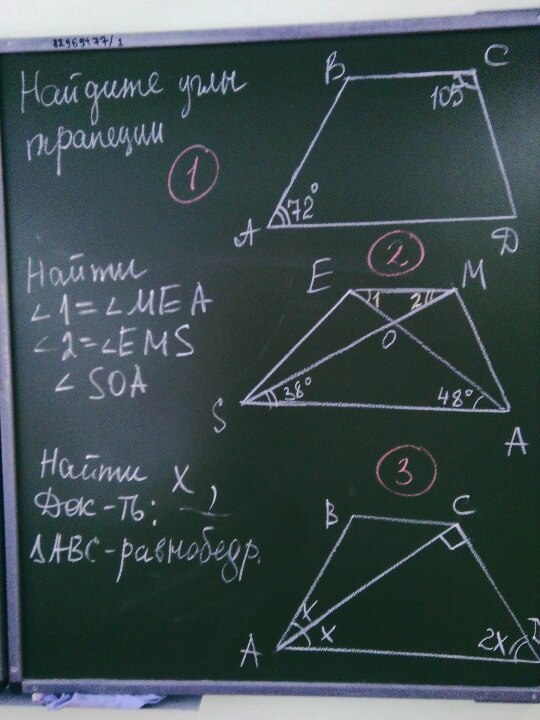 82969477/1
Найдите углы
трапеции
1
B
C
105°
72°
A
D
Найти
∠1=∠MEA
∠2=∠EMS
∠SOA
2
E
M
1
2
O
38°
48°
S
A
Найти x,
Док-ть:
ΔABC-равнобедр.
3
B
C
x
x
2x
A
D